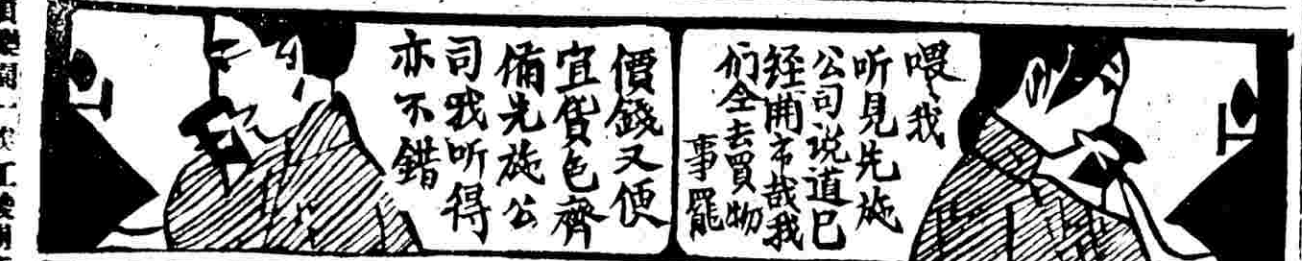 喂、我
听見先施
公司说道巳
经開市哉我
们仝去買物
事罷
價錢又便
宜貨色齊
備先施公
司我听得
亦不錯